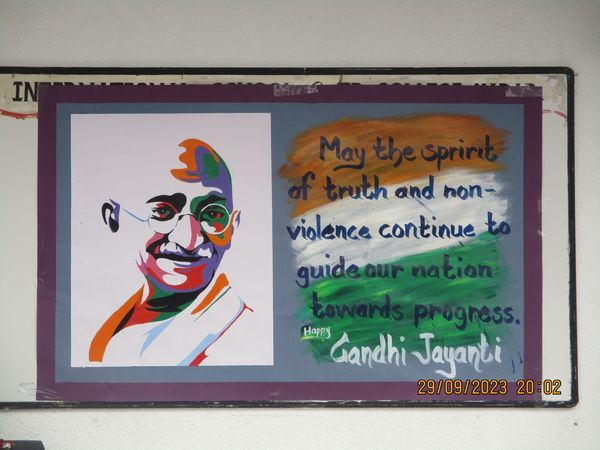 INTERNATIONAL SCHOOL
May the spririt
of truth and non-
violence continue to
guide our nation
towards progress.
Happy
Gandhi Jayanti
29/09/2023 20:02